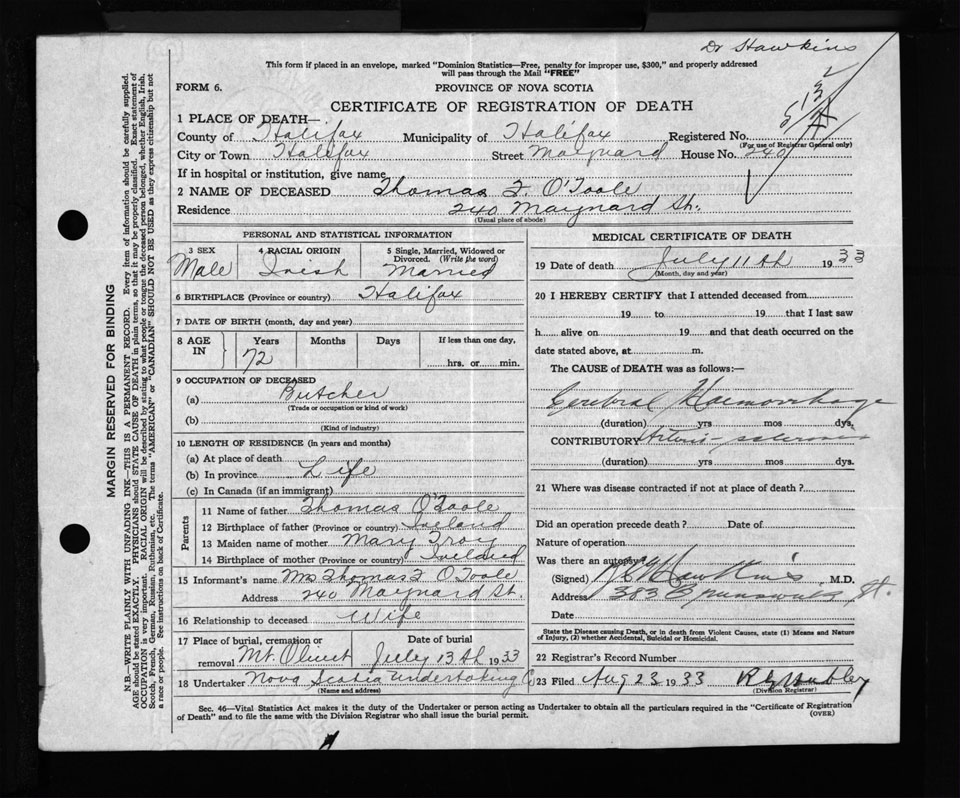 Dr Hawkins
This form if placed in an envelope, marked "Dominion Statistics—Free, penalty for improper use, $300," and properly addressed
will pass through the Mail "FREE"
FORM 6.
PROVINCE OF NOVA SCOTIA
CERTIFICATE OF REGISTRATION OF DEATH
1 PLACE OF DEATH—
County of Halifax Municipality of Halifax Registered No.
(For use of Registrar General only)
City or Town Halifax Street Maynard House No. 240
If in hospital or institution, give name
2 NAME OF DECEASED Thomas F. O'Toole
Residence 240 Maynard St.
(Usual place of abode)
PERSONAL AND STATISTICAL INFORMATION
3 SEX 4 RACIAL ORIGIN 5 Single, Married, Widowed or
Divorced. (Write the word)
Male Irish Married
6 BIRTHPLACE (Province or country) Halifax
7 DATE OF BIRTH (month, day and year)
8 AGE IN Years Months Days If less than one day,
72 hrs. or min.
9 OCCUPATION OF DECEASED
(a) Butcher
(Trade or occupation or kind of work)
(b)
(Kind of industry)
10 LENGTH OF RESIDENCE (in years and months)
(a) At place of death
(b) In province Life
(c) In Canada (if an immigrant)
Parents
11 Name of father Thomas O'Toole
12 Birthplace of father (Province or country) Ireland
13 Maiden name of mother Mary Troy
14 Birthplace of mother (Province or country) Ireland
15 Informant's name Mrs Thomas F O'Toole
Address 240 Maynard St.
16 Relationship to deceased Wife
17 Place of burial, cremation or Date of burial
removal Mt. Olivet July 13th 1933
18 Undertaker Nova Scotia Undertaking Co
(Name and address)
MEDICAL CERTIFICATE OF DEATH
19 Date of death July 11th 1933
(Month, day and year)
20 I HEREBY CERTIFY that I attended deceased from
19 to 19 that I last saw
h alive on 19 and that death occurred on
date stated above, at m.
The CAUSE of DEATH was as follows:—
Cerebral Haemorrhage
(duration) yrs mos dys.
CONTRIBUTORY Arterio-sclerosis
(duration) yrs mos dys.
21 Where was disease contracted if not at place of death?
Did an operation precede death? Date of
Nature of operation
Was there an autopsy?
(Signed) Hawkins M.D.
Address 383 Brunswick St.
Date
State the Disease causing Death, or in death from Violent Causes, state (1) Means and Nature
of Injury, (2) whether Accidental, Suicidal or Homicidal.
22 Registrar's Record Number
23 Filed Aug 23 1933
(Division Registrar)
Sec. 46—Vital Statistics Act makes it the duty of the Undertaker or person acting as Undertaker to obtain all the particulars required in the "Certificate of Registration
of Death" and to file the same with the Division Registrar who shall issue the burial permit.
(OVER)
MARGIN RESERVED FOR BINDING
N.B.—WRITE PLAINLY WITH UNFADING INK—THIS IS A PERMANENT RECORD. Every item of information should be carefully supplied.
AGE should be stated EXACTLY. PHYSICIANS should STATE CAUSE OF DEATH in plain terms, so that it may be properly classified. Exact statement of
OCCUPATION is very important. RACIAL ORIGIN will be described by stating to what people or tongue the deceased person belonged, whether English, Irish,
Scotch, French, German, Russian, Ruthenian, etc. The terms "AMERICAN" or "CANADIAN" SHOULD NOT BE USED as they express citizenship but not
a race or people. See instructions on back of Certificate.